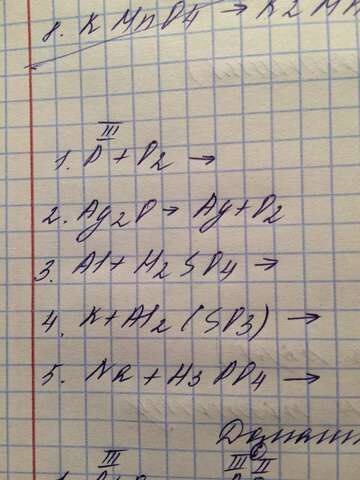 8. K MnO4 → K2 Mn
III
1. P + O2 →
2. Ag2O → Ag + O2
3. Al + H2SO4 →
4. K + Al2(SO3) →
5. Na + H3PO4 →
Домаш
III III II